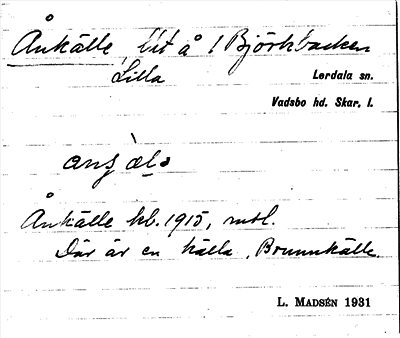 Ånkälle, lit å / Björkbacken
Lilla
Lerdala sn.
Vadsbo hd. Skar. l.
Ånkälle kb. 1915, mtl
Där är en källa, Brunnkälle.
L. MADSÉN 1931